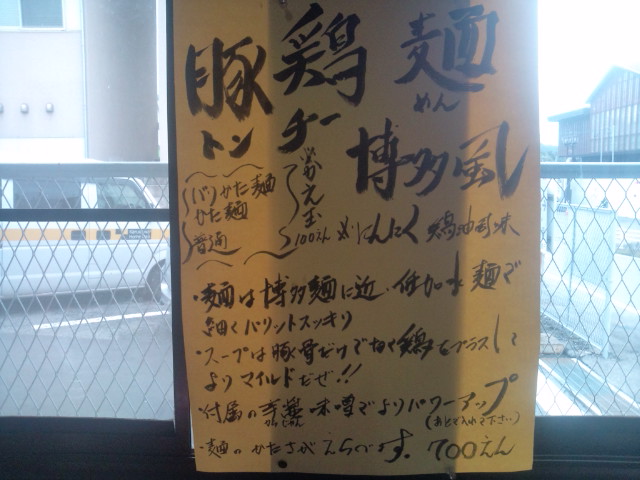 豚鶏麺
トンチーめん
博多風
バリかた麺
かた麺
普通
※かえ玉
100えん
※にんにく 鶏油風味
・麺は博多麺に近い低加水麺で
細くパリットスッキリ
・スープは豚骨だけでなく鶏をプラスして
よりマイルドだぜ!!
・付属の辛醤味噌でよりパワーアップ
(あとで入れて下さい)
・麺のかたさがえらべます。700えん